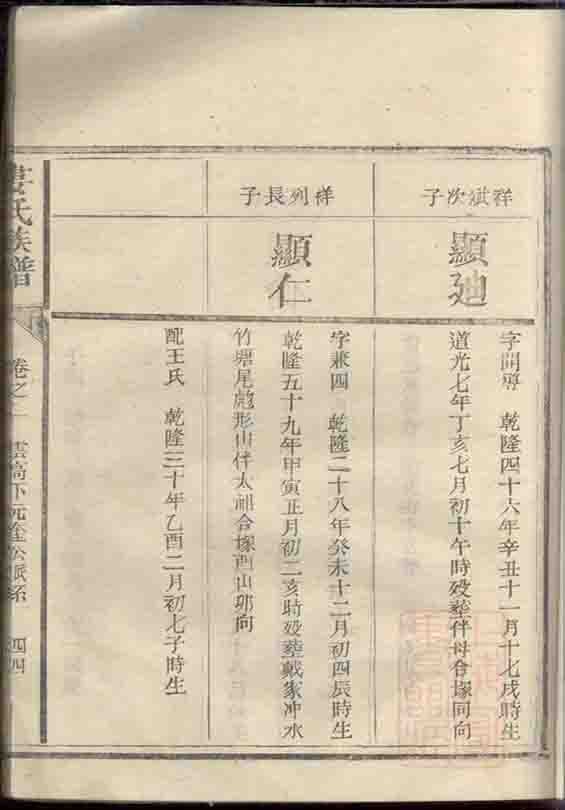 祥斌次子
顯廸
字開導　乾隆四十六年辛丑十一月十七戌時生
道光七年丁亥七月初十午時歿塟伴母合塚同向
祥列長子
顯仁
字兼四　乾隆二十八年癸未十二月初四辰時生
乾隆五十九年甲寅正月初二亥時歿塟戴家冲水
竹塅尾彪形山伴太祖合塚酉山邜向
配王氏　乾隆三十年乙酉二月初七子時生
姜氏族譜
卷之一
雲高下沅全公派系
四四